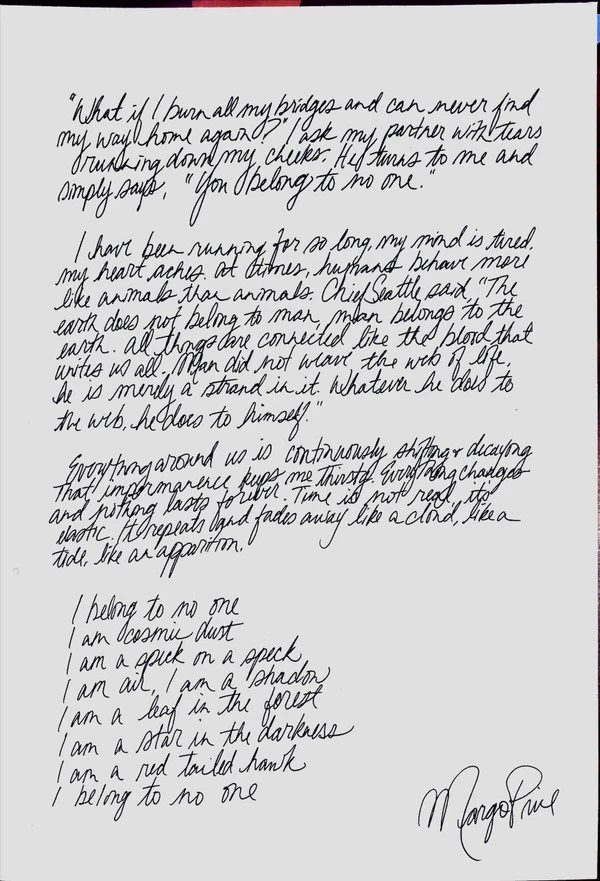 "What if I burn all my bridges and can never find
my way home again?" I ask my partner with tears
running down my cheeks. He turns to me and
simply says, "You belong to no one."
I have been running for so long, my mind is tired,
my heart aches. At times, humans behave more
like animals than animals. Chief Seattle said, "The
earth does not belong to man, man belongs to the
earth. All things are connected like the blood that
unites us all. Man did not weave the web of life,
he is merely a strand in it. Whatever he does to
the web, he does to himself."
Everything around us is continuously shifting & decaying
That impermanence keeps me thirsty. Everything changes
and nothing lasts forever. Time is not real, it's
elastic. It repeats and fades away like a cloud, like a
tide, like an apparition.
I belong to no one
I am cosmic dust
I am a speck on a speck
I am air, I am a shadow
I am a leaf in the forest
I am a star in the darkness
I am a red tailed hawk
I belong to no one
Margo Price